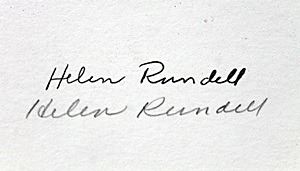 Helen Rundell
Helen Rundell